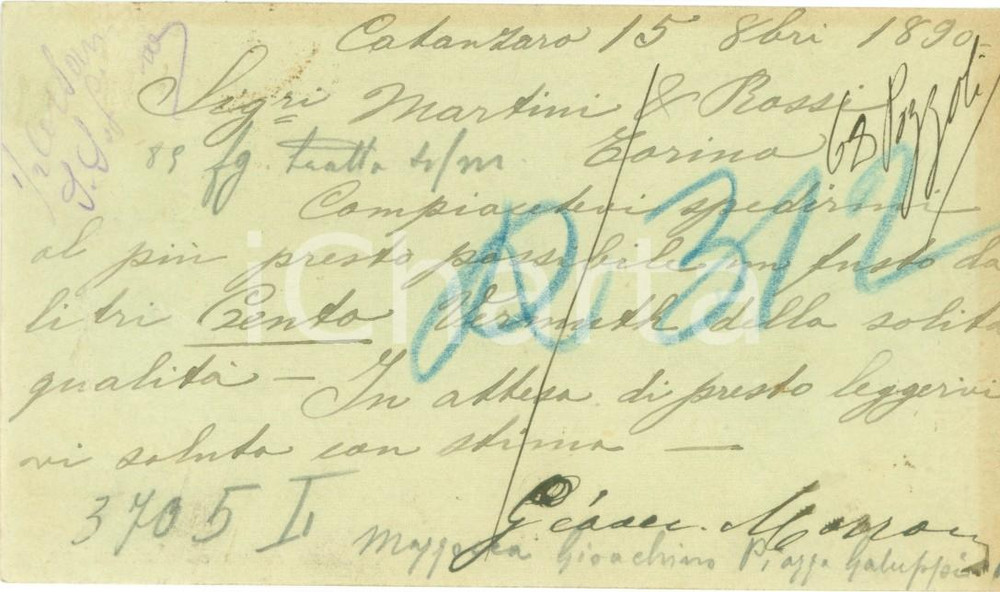 Catanzaro 15 8bri 1890
Sigri Martini & Rossi
Torino
89 fg. tratta
Compiacetevi spedirmi
al più presto possibile un fusto da
litri Cento Vermuth della solita
qualità – In attesa di presto leggervi
vi saluto con stima —
312
3705 I
Gioachino Piazza Galuppi
iCharta